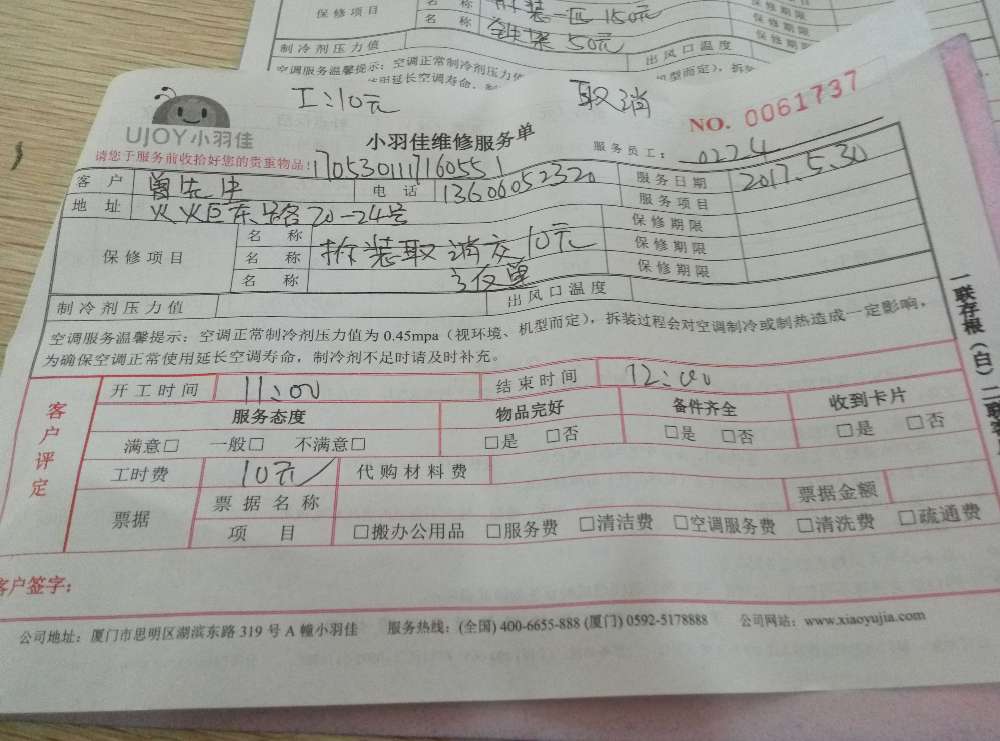 保修项目
名 称 拆装一匹 150元
名 称 50元
保修期限
保修期限
制冷剂压力值 出风口温度
空调服务温馨提示：空调正常制冷剂压力值 机型而定），拆装
使用延长空调寿命，制
工：10元 取消
UJOY小羽佳
小羽佳维修服务单
NO. 0061737
请您于服务前收拾好您的贵重物品！
170530111716055 1
服务员工： 0224
客 户 曾先生 电 话 13606052320 服务日期 2017.5.30
地 址 火炬东路20-24号 服务项目
保修项目 名 称 保修期限
名 称 拆装取消交10元 保修期限
名 称 单 保修期限
制冷剂压力值 出风口温度
空调服务温馨提示：空调正常制冷剂压力值为 0.45mpa（视环境、机型而定），拆装过程会对空调制冷或制热造成一定影响，
为确保空调正常使用延长空调寿命，制冷剂不足时请及时补充。
客户评定
开工时间 11:00 结束时间 12:00
服务态度 物品完好 备件齐全 收到卡片
满意□ 一般□ 不满意□ □是 □否 □是 □否 □是 □否
工时费 10元 代购材料费
票据 票据名称 票据金额
项 目 □搬办公用品 □服务费 □清洁费 □空调服务费 □清洗费 □疏通费
客户签字：
公司地址：厦门市思明区湖滨东路 319 号 A 幢小羽佳 服务热线：(全国) 400-6655-888 (厦门) 0592-5178888 公司网站：www.xiaoyujia.com
一联存根（白）二联客